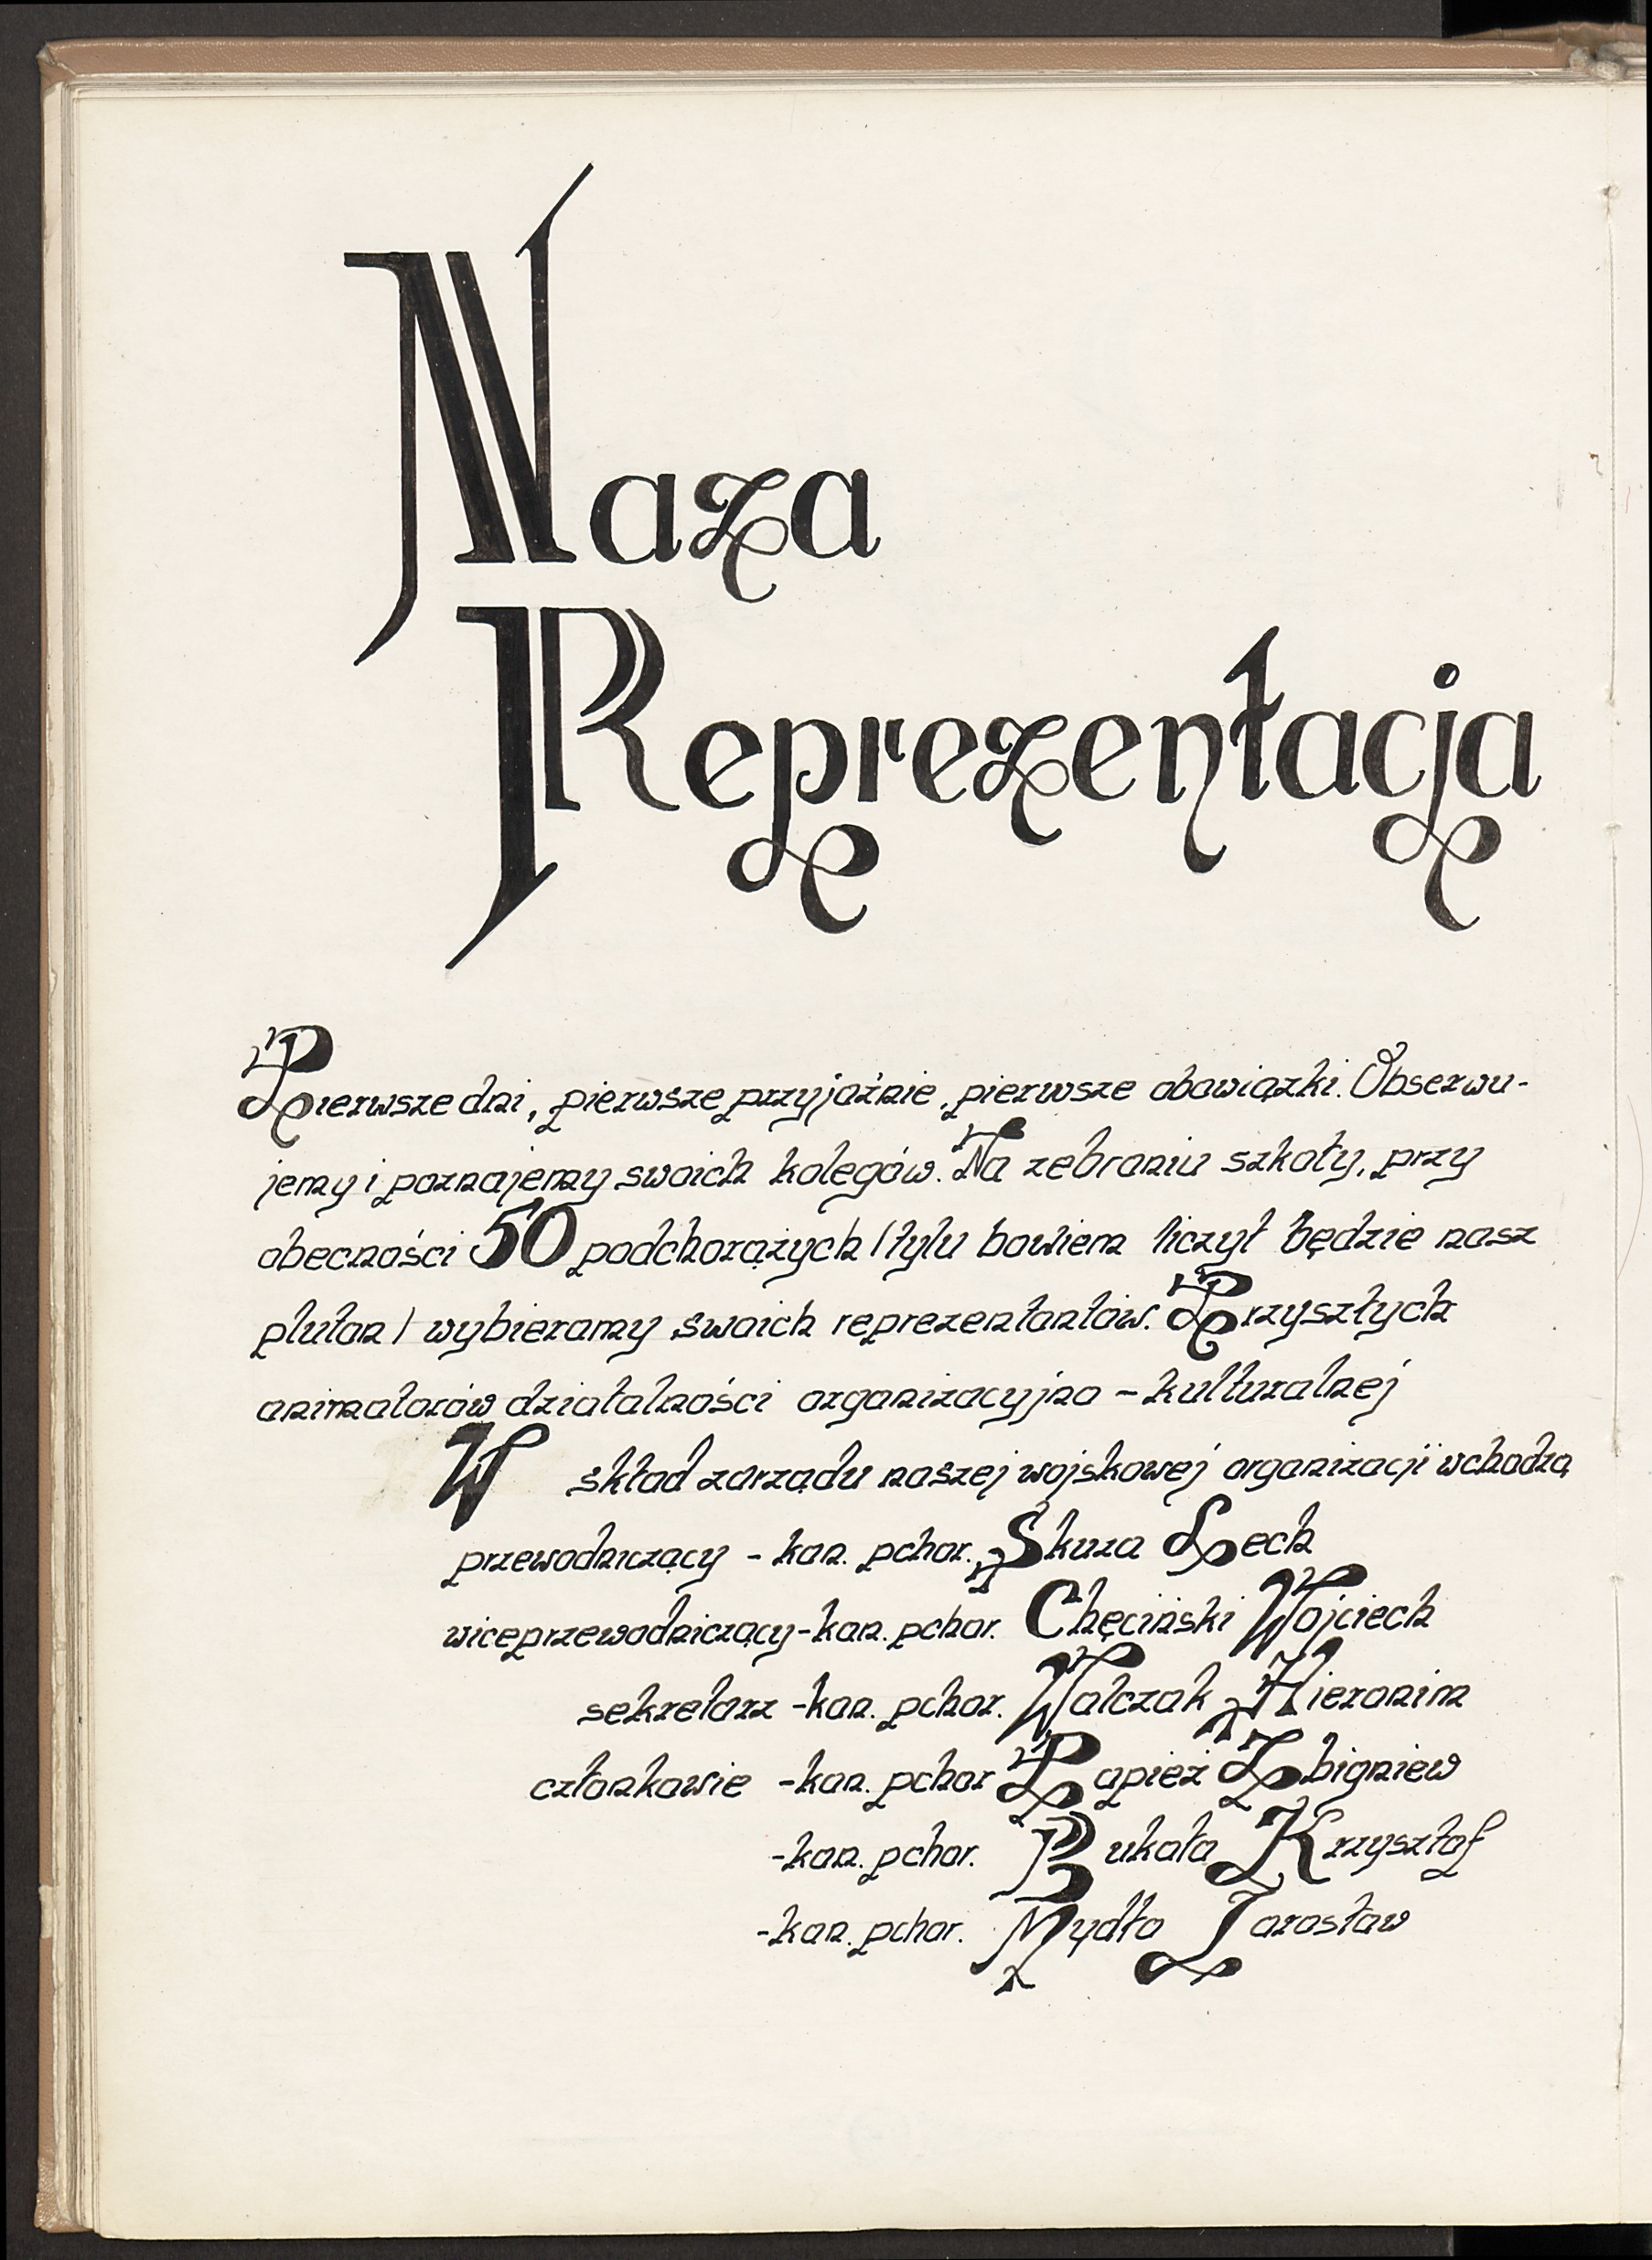 Naza
Reprezentacja
Pierwsze dni, pierwsze przyjaźnie, pierwsze obowiązki. Obserwu-
jemy i poznajemy swoich kolegów. Na zebraniu szkoły, przy
obecności 50 podchorążych /tylu bowiem liczył będzie nasz
pluton/ wybieramy swoich reprezentantów. Przyszłych
animatorów działalności organizacyjno - kulturalnej
W skład zarządu naszej wojskowej organizacji wchodzą
przewodniczący - kan. pchor. Skuza Lech
wiceprzewodniczący - kan. pchor. Chęciński Wojciech
sekretarz - kan. pchor. Walczak Hieronim
członkowie - kan. pchor Papież Zbigniew
- kan. pchor. Bukała Krzysztof
- kan. pchor. Mydło Jarosław